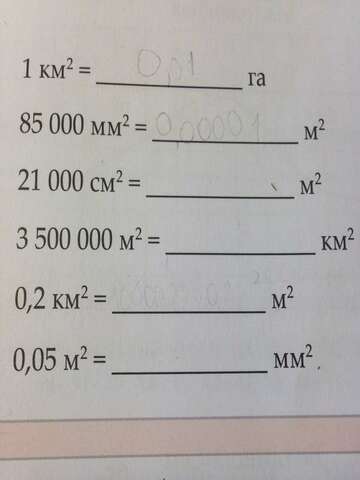 1 км² = 0,01 га
85 000 мм² = 0,00001 м²
21 000 см² = ________ м²
3 500 000 м² = ________ км²
0,2 км² = ________ м²
0,05 м² = ________ мм².